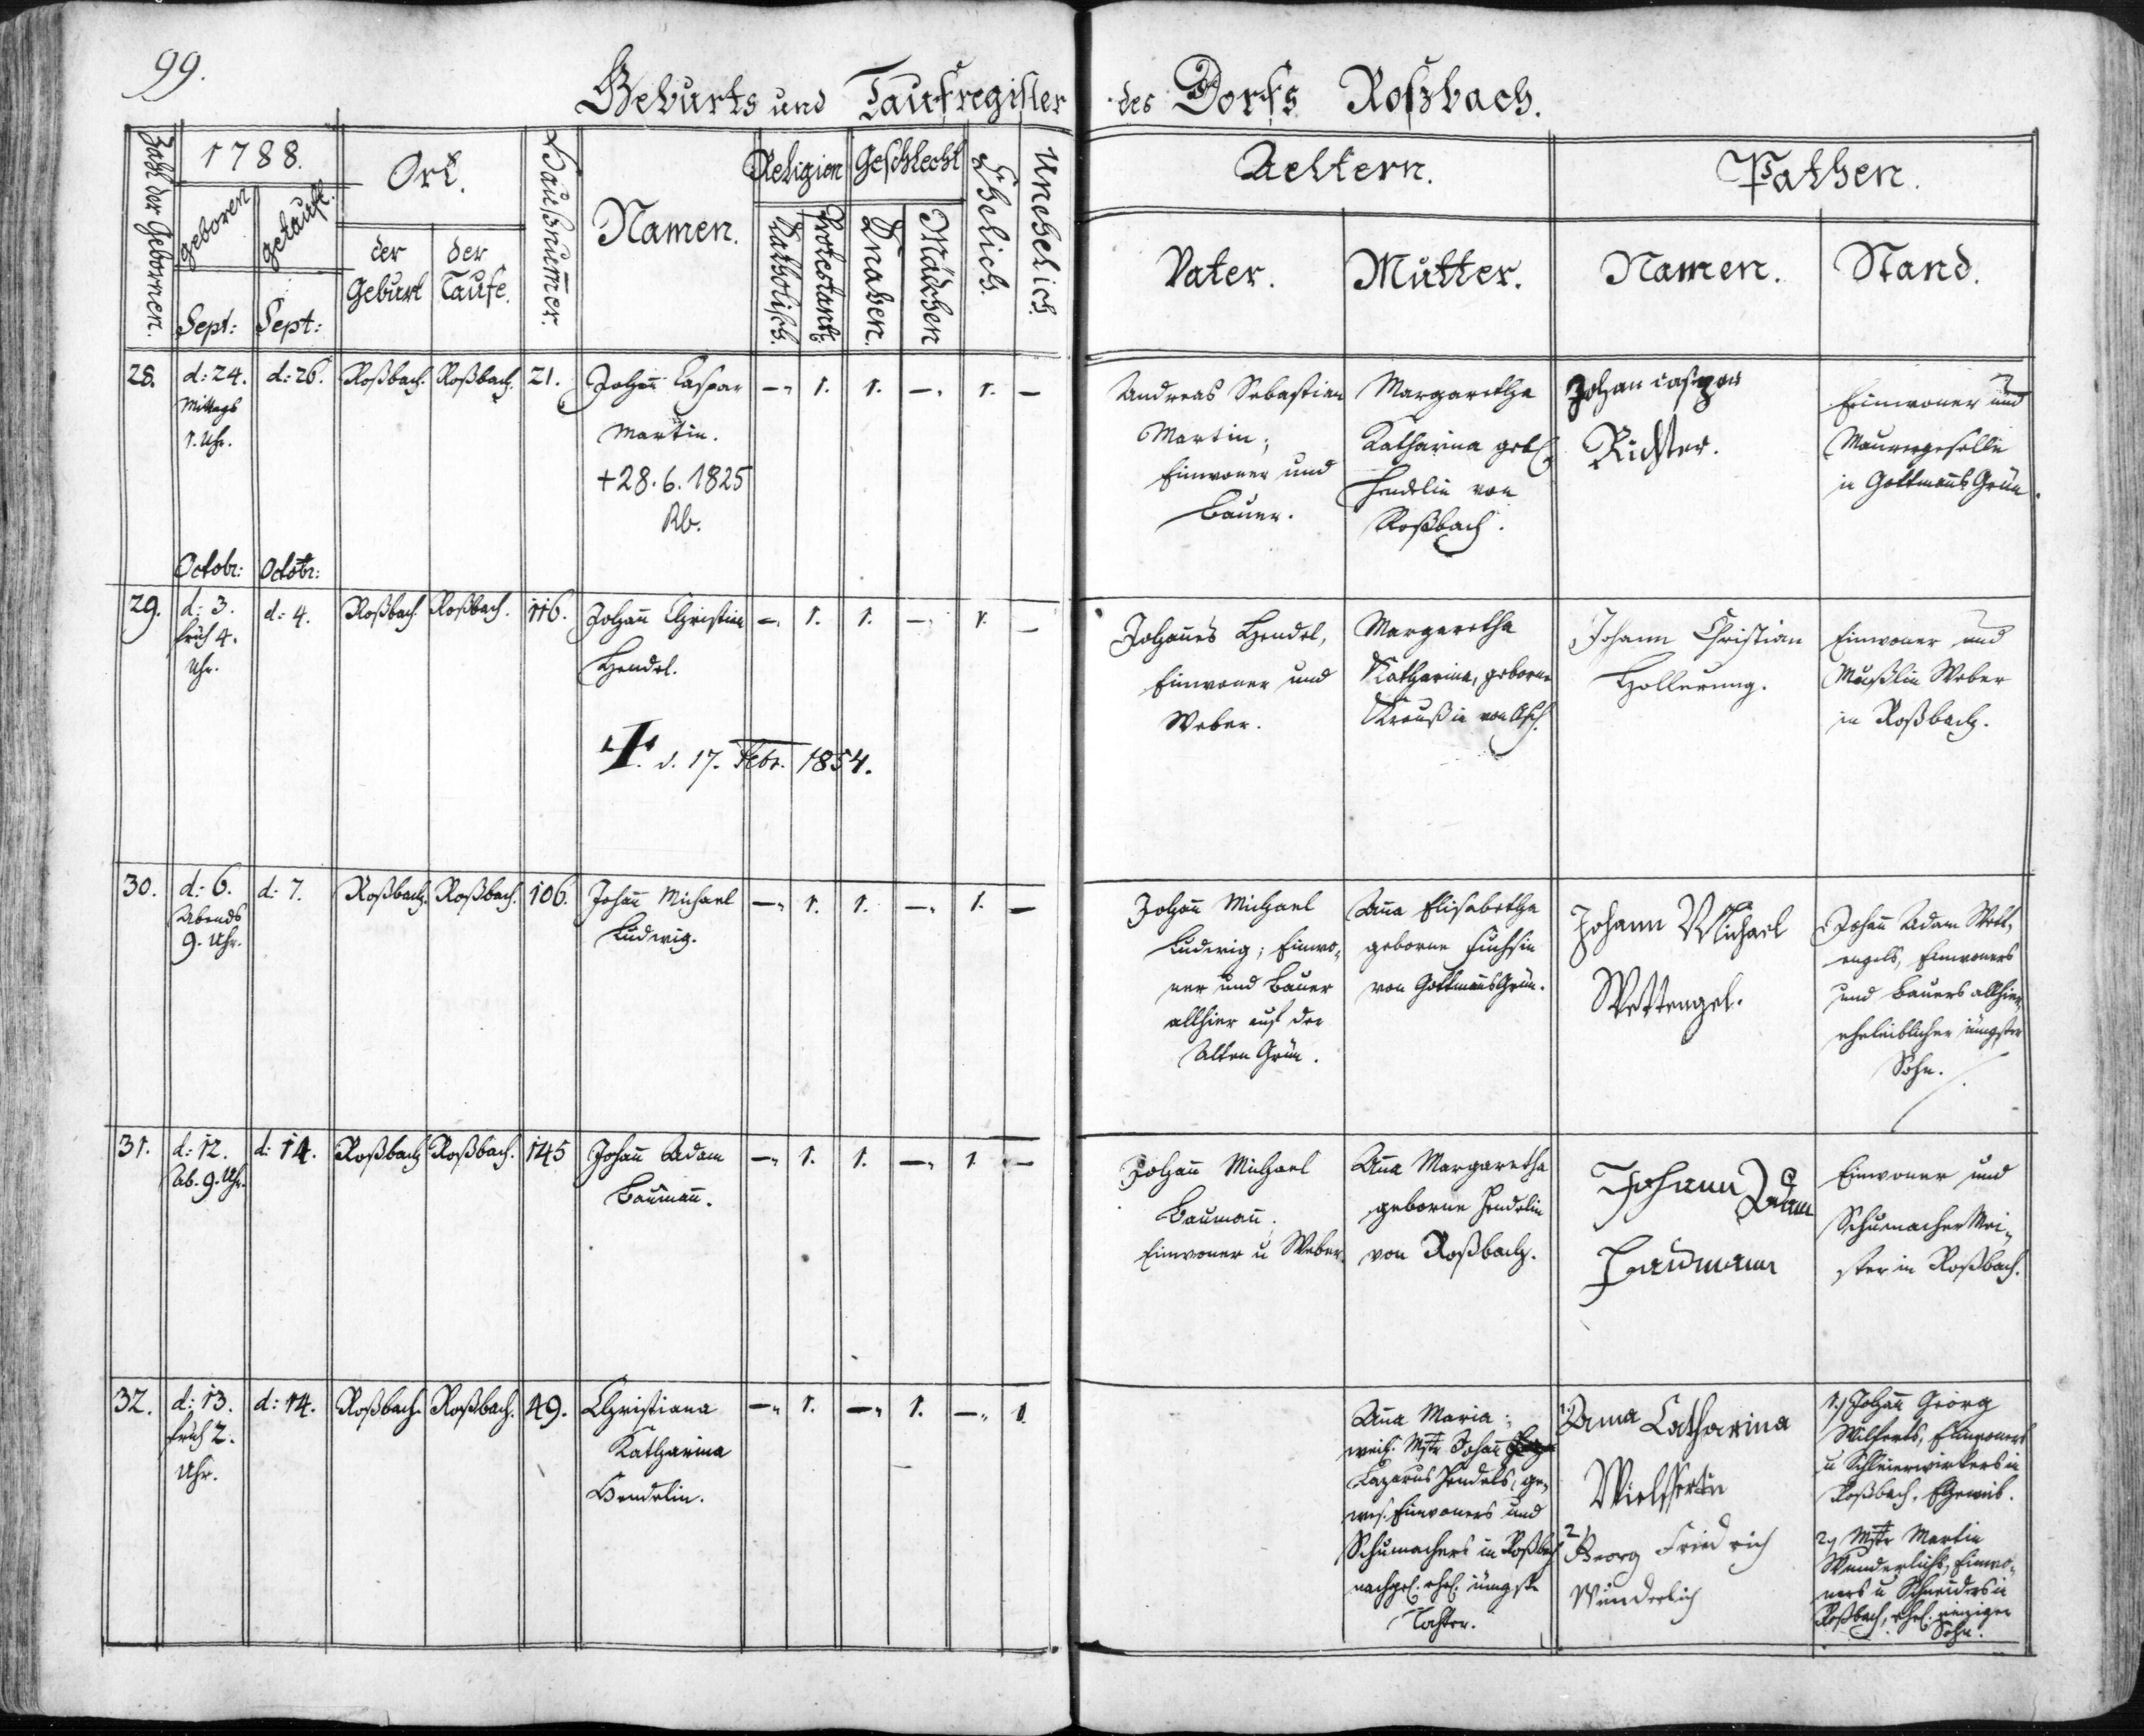 99.
Geburts und Taufregister des Dorfs Roßbach.
Zahl der Gebornen.
1788.
geboren
getauft.
Sept:
Sept:
Ort.
der Geburt
der Taufe.
Haußnummer.
Namen.
Religion
Katholisch.
Protestant.
Geschlecht
Knaben.
Mädchen
Ehelich.
Unehelich
Aeltern.
Vater.
Mutter.
Pathen.
Namen.
Stand.
28.
d: 24.
Mittags
1. Uhr.
d: 26.
Roßbach.
Roßbach.
21.
Johann Caspar
Martin.
+28.6.1825
Rb.
—
1.
1.
—
1.
—
Andreas Sebastian
Martin;
Einwoner und
Bauer.
Margaretha
Katharina geb.
Hendelin von
Roßbach.
Johan caspar
Richter.
Einwoner und
Maurergeselle
in Gottmañs Grün.
Octobr:
Octobr:
29.
d: 3.
früh 4.
Uhr.
d: 4.
Roßbach.
Roßbach.
116.
Johañ Christian
Hendel.
+. d. 17. Febr. 1854.
—
1.
1.
—
1.
—
Johañes Hendel,
Einwoner und
Weber.
Margaretha
Katharina, geborne
Kraußin von Asch.
Johann Christian
Hollerung.
Einwoner und
Mußlin Weber
in Roßbach.
30.
d: 6.
Abends
9. Uhr.
d: 7.
Roßbach.
Roßbach.
106.
Johañ Michael
Ludwig.
—
1.
1.
—
1.
—
Johañ Michael
Ludwig; Einwo-
ner und Bauer
allhier auf der
Alten Grün.
Aña Elisabetha
geborne Fuchsin
von Gottmañs Grün.
Johann Michael
Wettengel.
Johañ Adam Wett-
engels, Einwoners
und Bauers allhier
eheleiblicher jüngster
Sohn.
31.
d: 12.
Ab. 9. Uhr.
d: 14.
Roßbach
Roßbach.
145
Johañ Adam
Baumañ.
—
1.
1.
—
1.
—
Johañ Michael
Baumañ.
Einwoner u Weber
Aña Margaretha
geborne Hendelin
von Roßbach.
Johann Adam
Einwoner und
Schumacher Mei-
ster in Roßbach.
32.
d: 13.
früh 2.
Uhr.
d: 14.
Roßbach.
Roßbach.
49.
Christiana
Katharina
Hendelin.
—
1.
—
1.
—
1.
Aña Maria;
weil. Mstr Johañ
Lazarus Hendels, ge-
wes. Einwoners und
Schumachers in Roßbach
nachgel. ehel. jüngste
Tochter.
1. Anna Catharina
Wielffertin
2. Georg Friedrich
Wunderlich
1.) Johañ Georg
Wilferts, Einwoners
u Schleierwirkers in
Roßbach, Eheweib.
2.) Mstr Martin
Wunderlichs, Einwo-
ners u Schneiders in
Roßbach, ehel. einziger
Sohn.